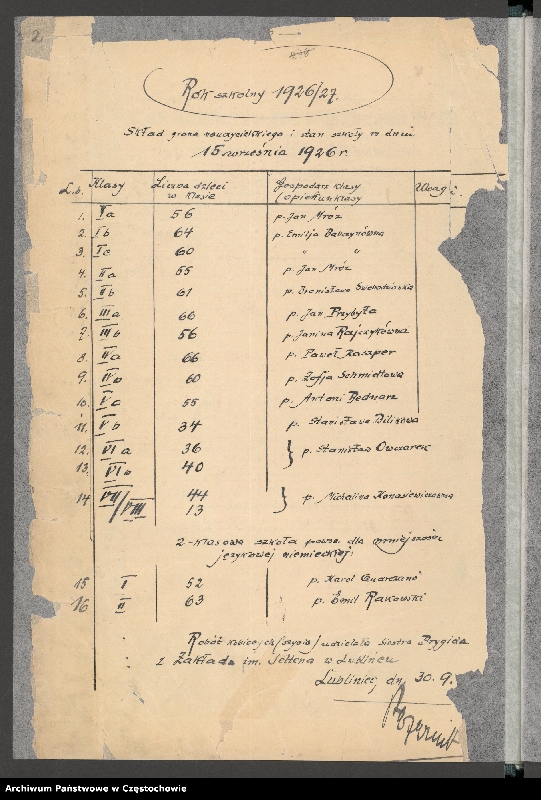 2
Rok szkolny 1926/27.
Skład grona nauczycielskiego i stan szkoły w dniu
15 września 1926 r.
L.b. Klasy Liczba dzieci w klasie Gospodarz klasy (opiekun klasy) Uwagi
1. Ia 56 p. Jan Mróz
2. Ib 64 p. Emilja
3. Ic 60 " "
4. IIa 55 p. Jan Mróz
5. IIb 61 p. Bronisława
6. IIIa 66 p. Jan Przybyła
7. IIIb 56 p. Janina Rajczykówna
8. a 66 p. Paweł Kasper
9. IVb 60 p. Zofja Schmidtowa
10. Va 55 p. Antoni Bednarz
11. Vb 34 p. Stanisława Bilikowa
12. VI a 36 } p. Stanisław Owczarek
13. VI b 40
14 VII/VIII 44 } p. Michalina
13
2-klasowa szkoła powsz. dla mniejszości
językowej niemieckiej:
15 I 52 p. Karol
16 II 63 p. Emil Rakowski
Robót kobiecych (szycia) udzielała siostra Brygida
z Zakładu im. w Lublińcu
Lubliniec, dn. 30. 9.
Archiwum Państwowe w Częstochowie